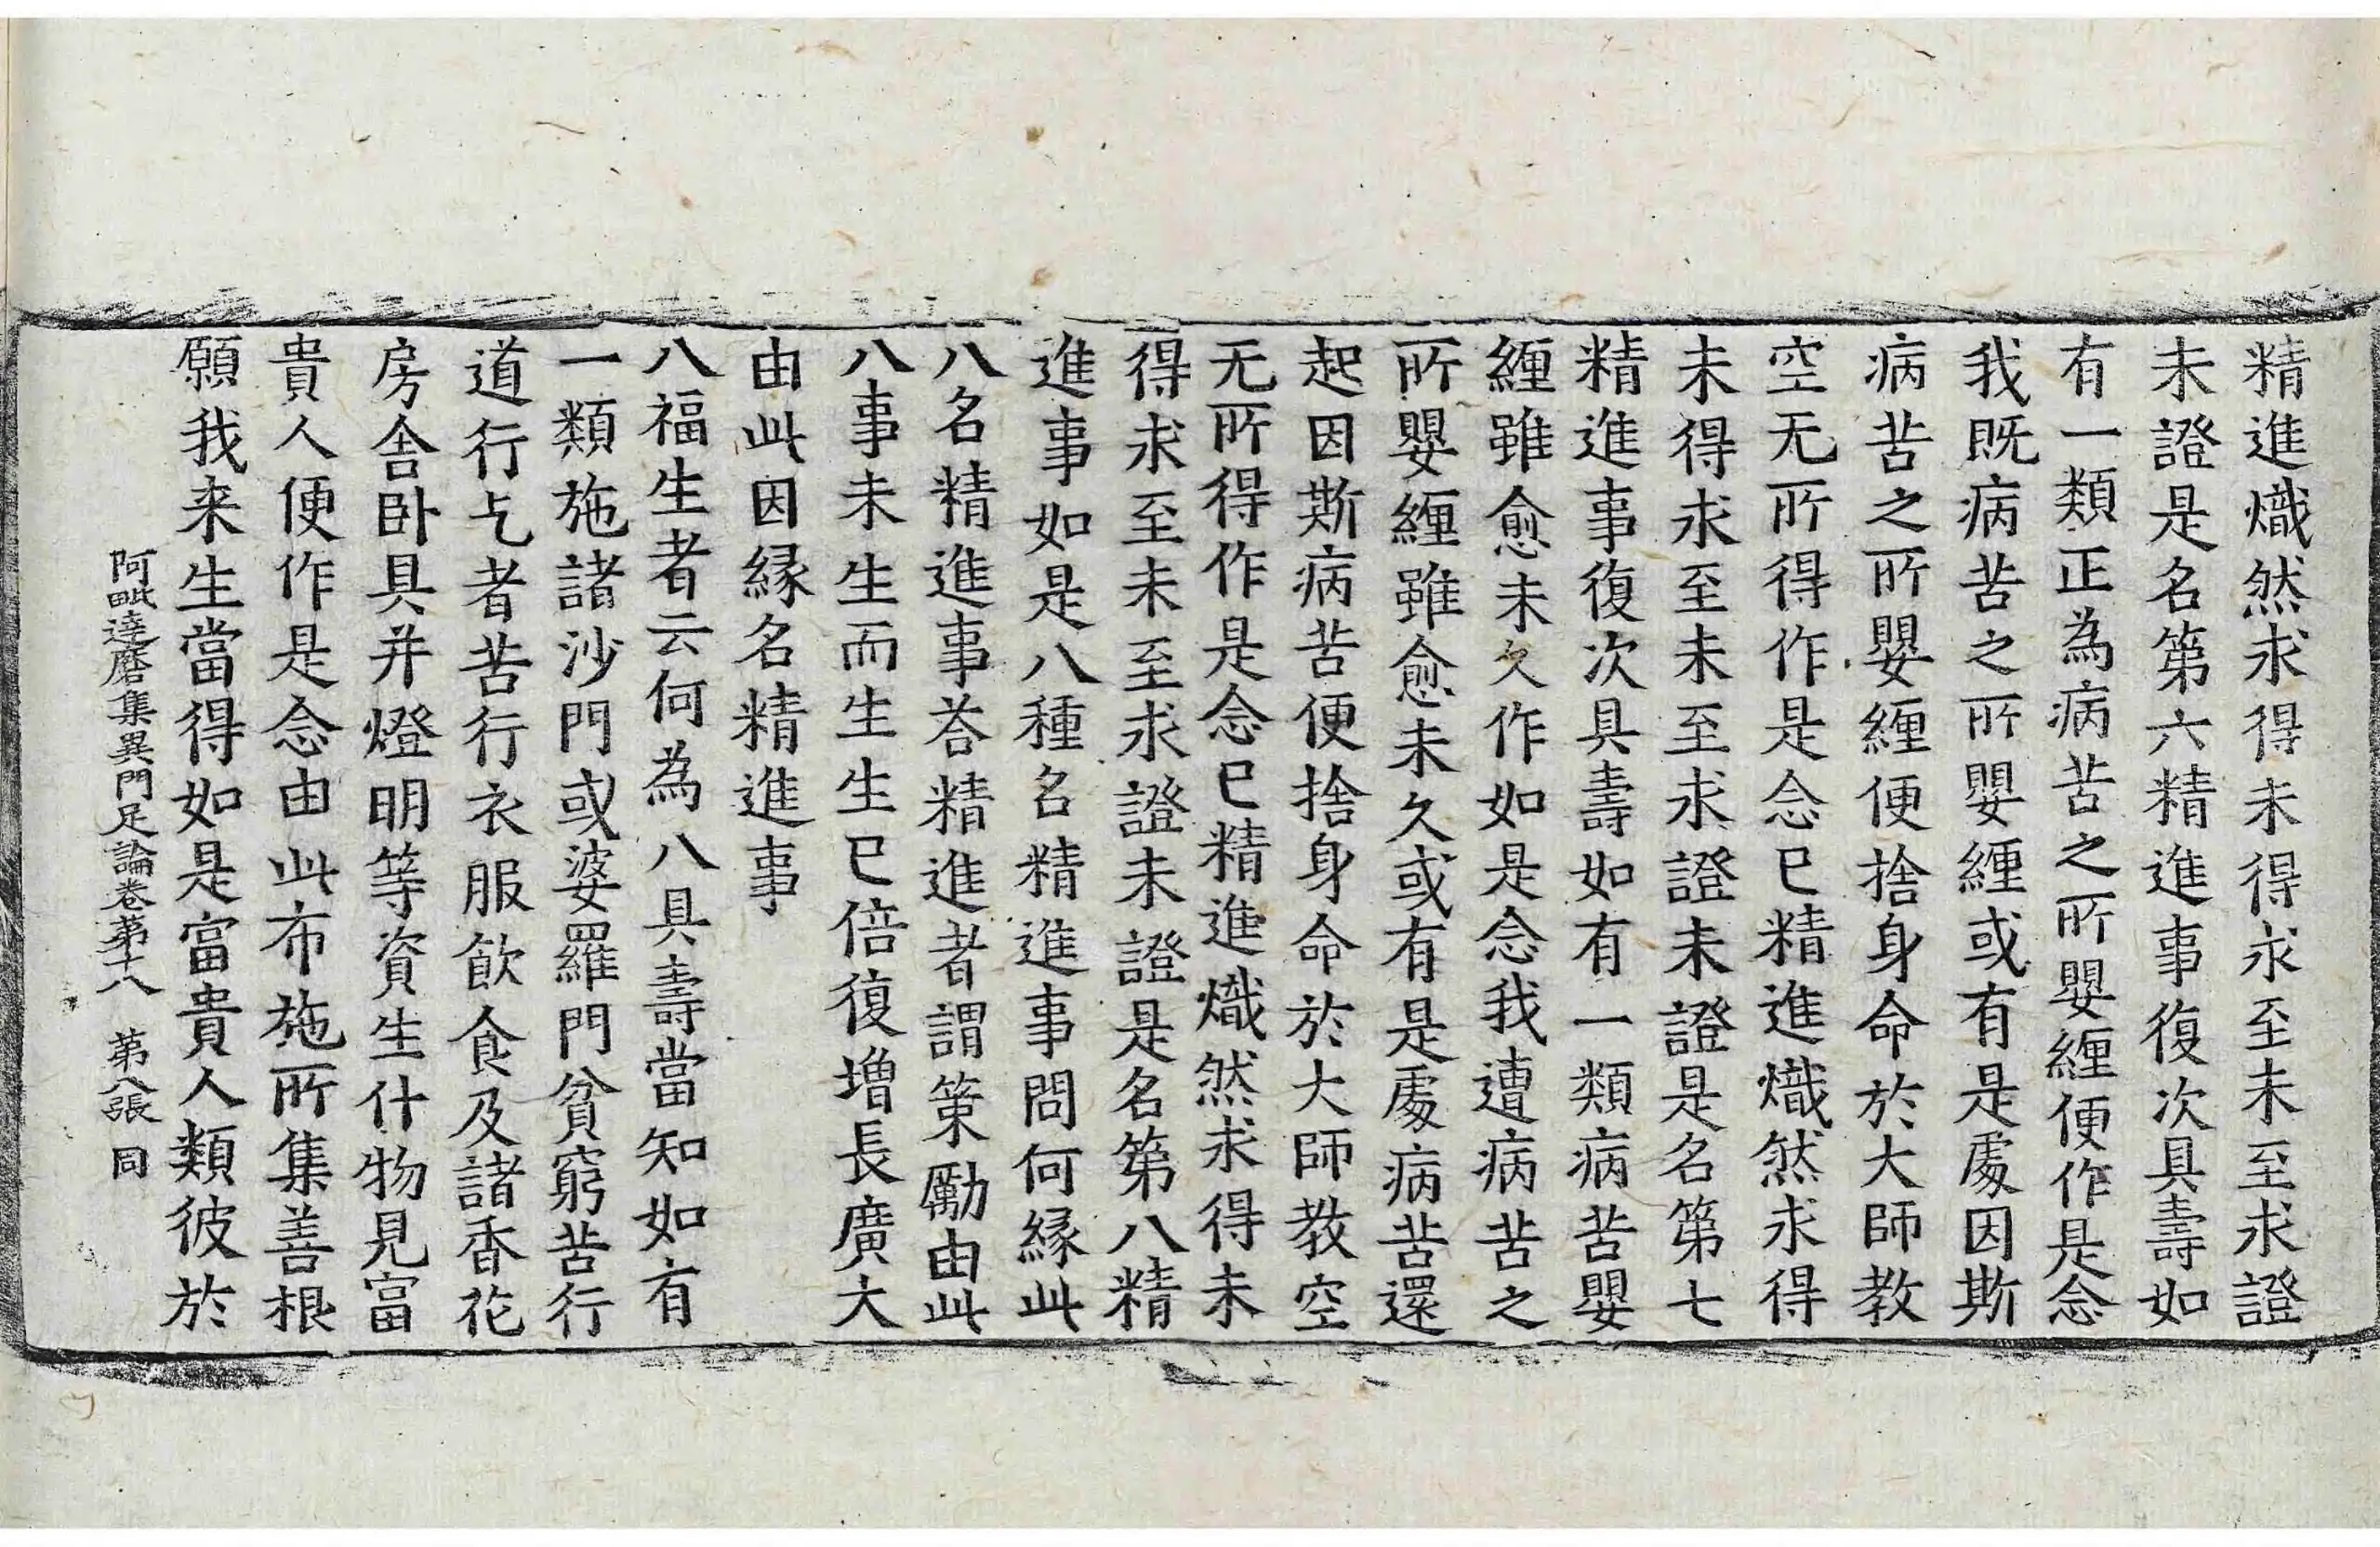 精進熾然求得未得求至未至求證
未證是名第六精進事復次具壽如
有一類正為病苦之所嬰纏便作是念
我既病苦之所嬰纏或有是處因斯
病苦之所嬰纏便捨身命於大師教
空无所得作是念已精進熾然求得
未得求至未至求證未證是名第七
精進事復次具壽如有一類病苦嬰
纏雖愈未久作如是念我遭病苦之
所嬰纏雖愈未久或有是處病苦還
起因斯病苦便捨身命於大師教空
无所得作是念已精進熾然求得未
得求至未至求證未證是名第八精
進事如是八種名精進事問何緣此
八名精進事荅精進者謂策勵由此
八事未生而生生已倍復增長廣大
由此因緣名精進事
八福生者云何為八具壽當知如有
一類施諸沙門或婆羅門貧窮苦行
道行乞者苦行衣服飲食及諸香花
房舍臥具并燈明等資生什物見富
貴人便作是念由此布施所集善根
願我来生當得如是富貴人類彼於
阿毗達磨集異門足論卷苐十八 苐八張 同